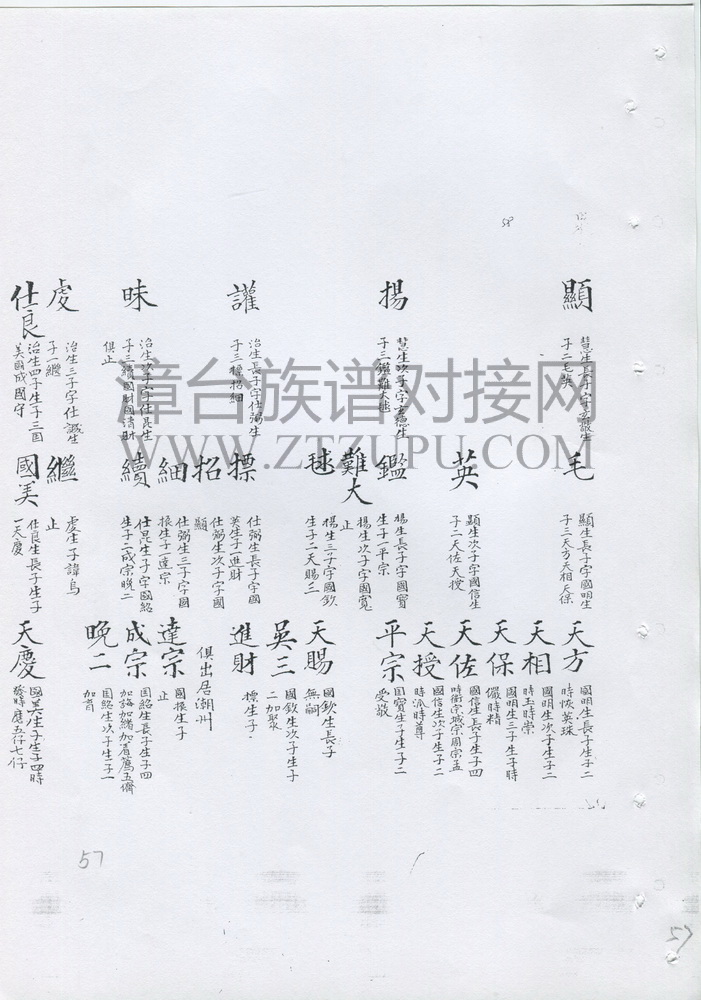 58
顯
慧生長子字
子二毛英
揚
慧生次子字
子三鑑難大毬
讙
治生長子字仕弼生
子三標招細
昧
治生次子字仕昆生
子三續國財國清財
俱止
虔
治生三子字仕誠生
子一繼
仕良
治生四子生子三國
美國成國守
毛
顯生長子字國明生
子三天方天相天保
英
顯生次子字國信生
子二天佐天授
鑑
揚生長子字國寶
生子一平宗
難大
揚生次子字國寬
止
毬
揚生三子字國欽
生子二天賜三
標
仕弼生長子字國
英生子一進財
招
仕弼生次子字國
顯
細
仕弼生三子字國
振生子一達宗
續
仕昆生子字國紹
生子二成宗晚二
繼
虔生子諱烏
止
國美
仕良生長子生子
一天慶
天方
國明生長子生子二
時恢英珠
天相
國明生次子生子二
時玉時崇
天保
國明生三子生子時
儼時精
天佐
國信生長子生子四
時衛宗城宗周宗孟
天授
國信生次子生子二
時派時尊
平宗
國寶生子生子二
受敬
天賜
國欽生長子
無嗣
吳三
國欽生次子生子
二加聚
進財
標生子
俱出居潮州
達宗
國振生子
止
成宗
國紹生長子生子四
加諭加緒加看薦五儕
晚二
國紹生次子生子一
加育
天慶
國美生子生子四時
發時應五仔七仔
57
57
漳台族谱对接网
WWW.ZTZUPU.COM